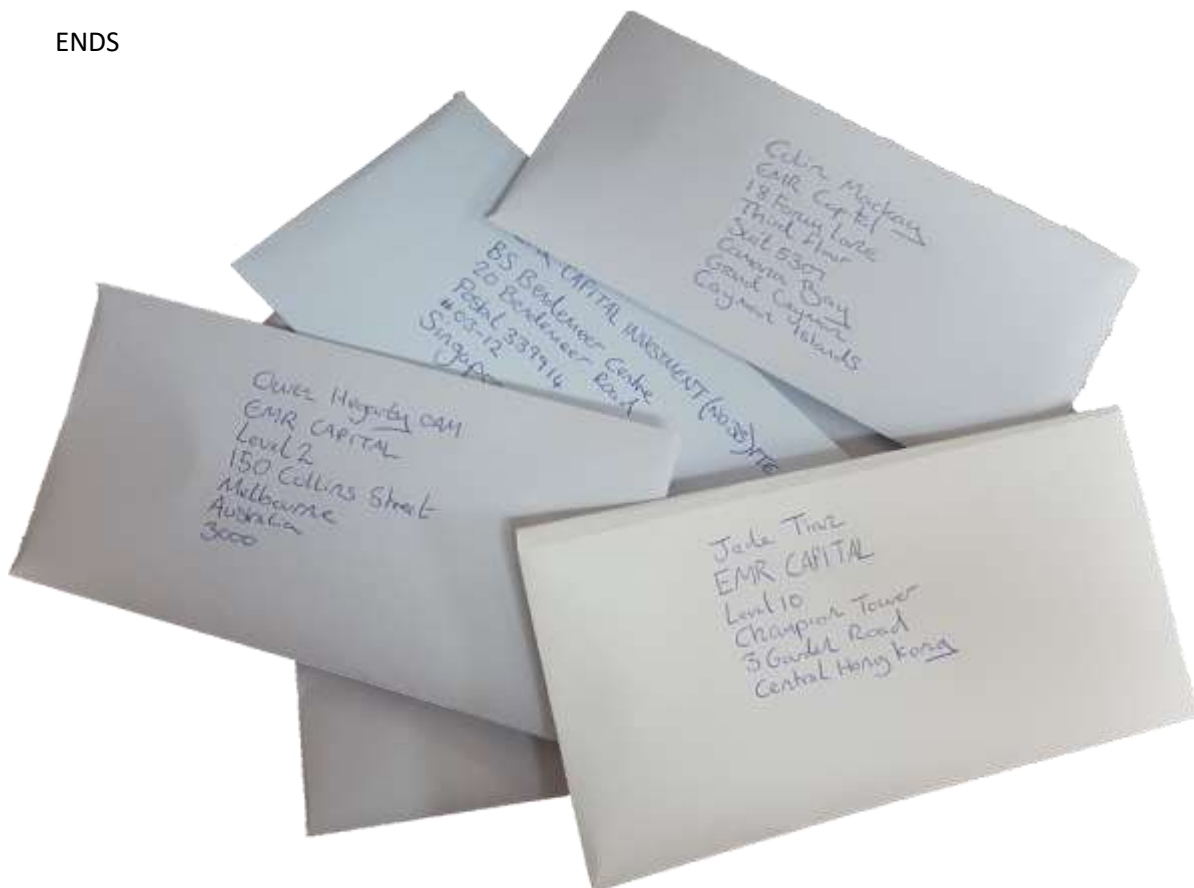 ENDS
Colin Mackay
EMR Capital
18 Forum Lane
Third Floor
Suit 5307
Camana Bay
Grand Cayman
Cayman Islands
CAPITAL INVESTMENT (No. 3B) PTE
BS Bendemeer Centre
20 Bendemeer Road
Postal 339914
#03-12
Singapo
Owen Hegarty OAM
EMR CAPITAL
Level 2
150 Collins Street
Melbourne
Australia
3000
Jade
EMR CAPITAL
Level 10
Champion Tower
3 Garden Road
Central Hong Kong